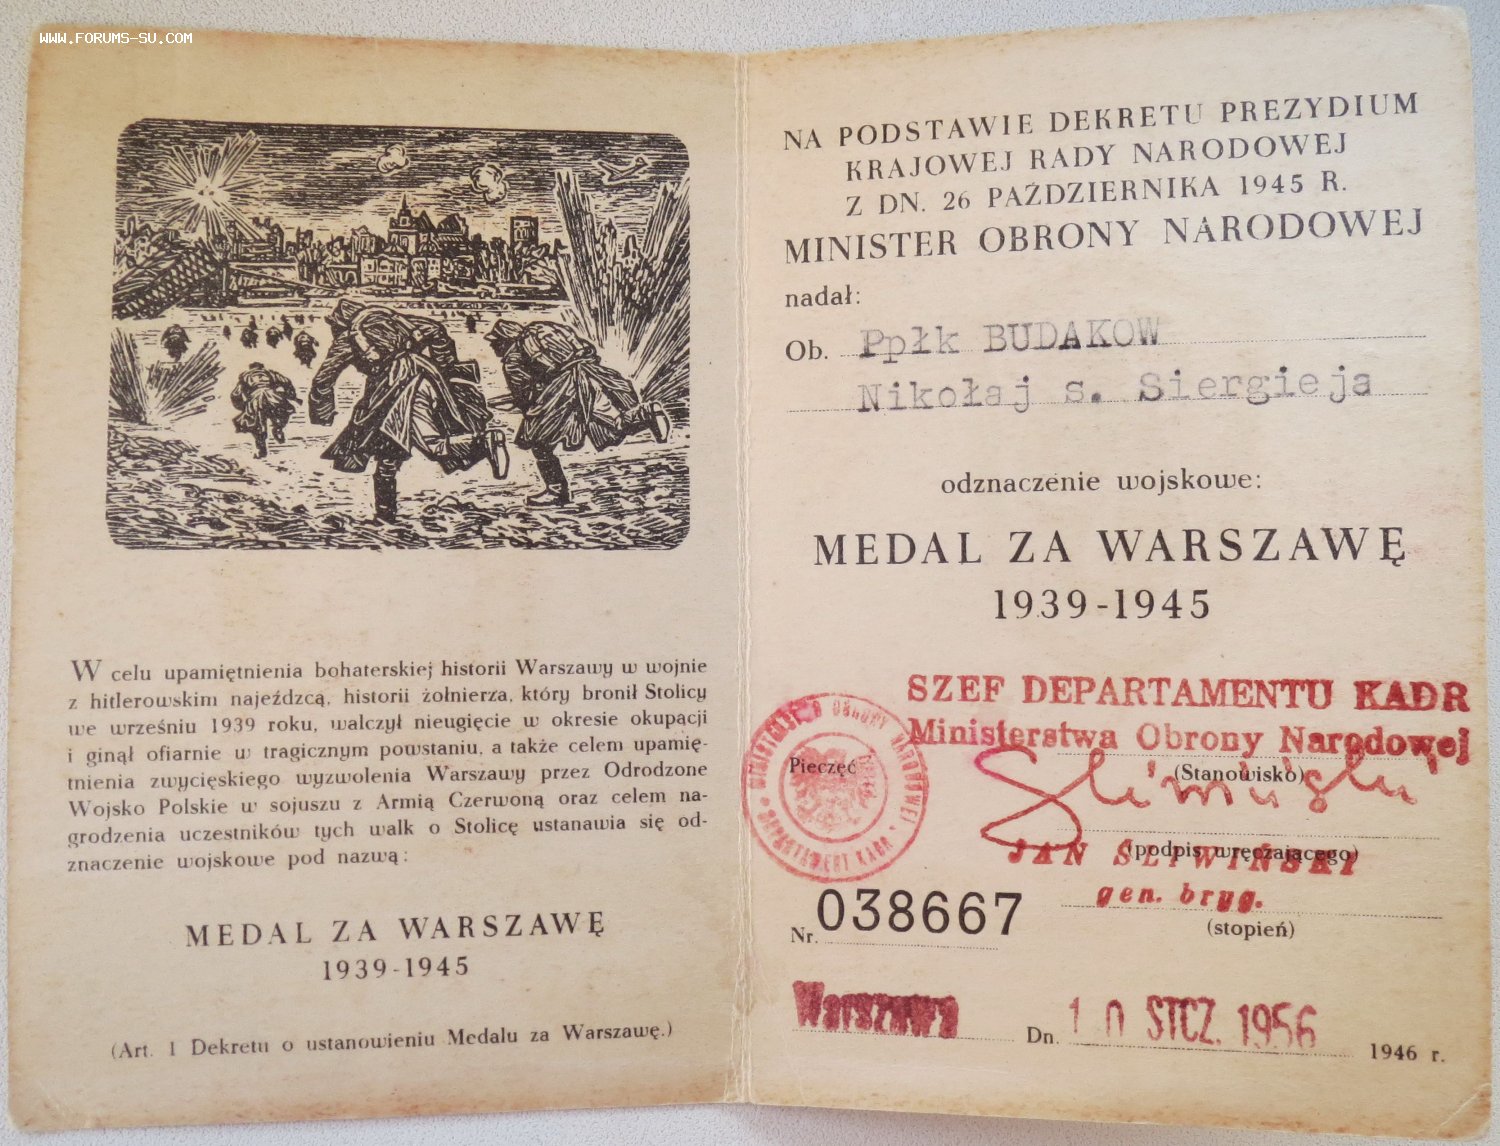 WWW.FORUMS-SU.COM
W celu upamiętnienia bohaterskiej historii Warszawy w wojnie
z hitlerowskim najeźdzcą, historii żołnierza, który bronił Stolicy
we wrześniu 1939 roku, walczył nieugięcie w okresie okupacji
i ginął ofiarnie w tragicznym powstaniu, a także celem upamię-
tnienia zwycięskiego wyzwolenia Warszawy przez Odrodzone
Wojsko Polskie w sojuszu z Armią Czerwoną oraz celem na-
grodzenia uczestników tych walk o Stolicę ustanawia się od-
znaczenie wojskowe pod nazwą:
MEDAL ZA WARSZAWĘ
1939-1945
(Art. 1 Dekretu o ustanowieniu Medalu za Warszawę.)
NA PODSTAWIE DEKRETU PREZYDIUM
KRAJOWEJ RADY NARODOWEJ
Z DN. 26 PAŹDZIERNIKA 1945 R.
MINISTER OBRONY NARODOWEJ
nadał:
Ob. Ppłk BUDAKOW
Nikołaj s. Siergieja
odznaczenie wojskowe:
MEDAL ZA WARSZAWĘ
1939-1945
SZEF DEPARTAMENTU KADR
Ministerstwa Obrony Narodowej
MINISTERSTWO OBRONY NARODOWEJ
DEPARTAMENT KADR
Pieczęć
(Stanowisko)
(podpis wręczającego)
JAN ŚLIWIŃSKI
gen. bryg.
(stopień)
Nr. 038667
Warszawa Dn. 10 STCZ. 1956 1946 r.